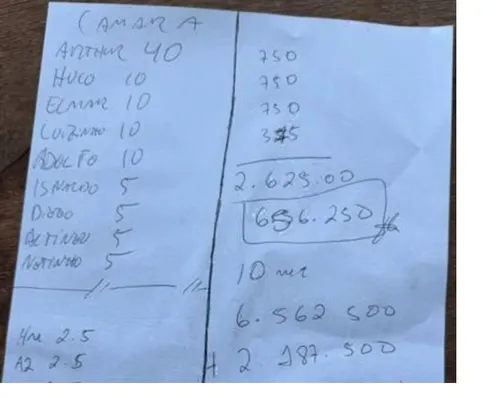 CAMARA
ARTHUR 40
HUGO 10
ELMAR 10
LUIZINHO 10
ADOLFO 10
ISNALDO 5
DIOGO 5
ALTINEU 5
NETINHO 5
HM 2.5
A2 2.5
750
750
750
375
2.625.00
656.250
10
6.562 500
2.187.500